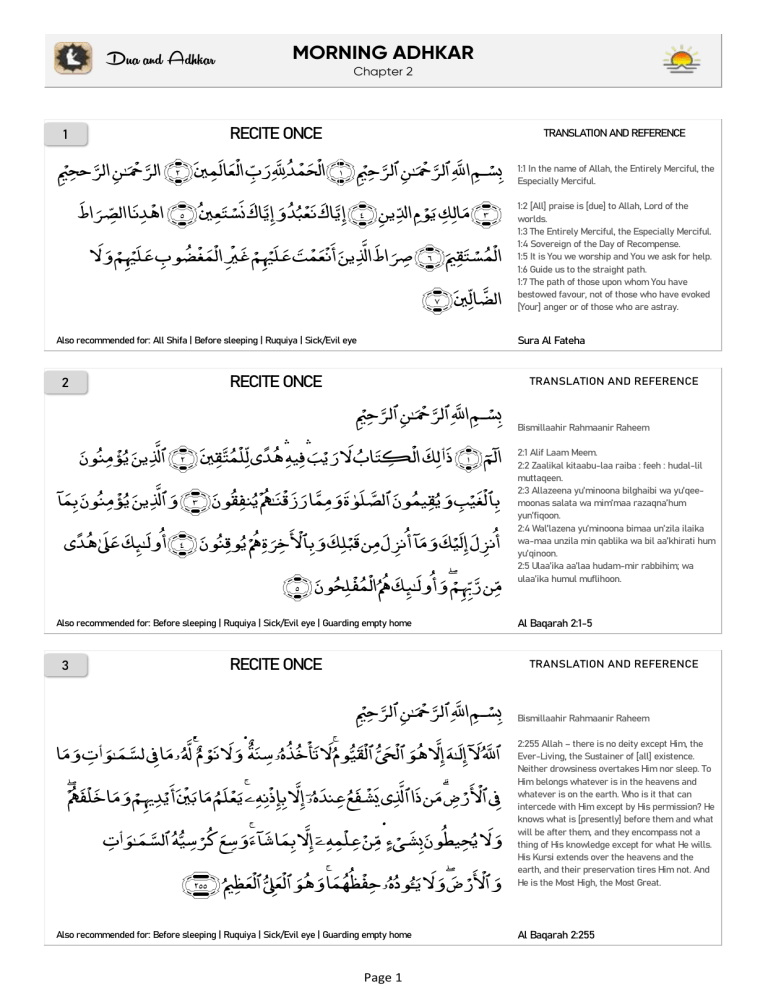 Dua and Adhkar
MORNING ADHKAR
Chapter 2
1
RECITE ONCE
TRANSLATION AND REFERENCE
بِسْمِ اللَّهِ الرَّحْمَٰنِ الرَّحِيمِ ﴿١﴾ الْحَمْدُ لِلَّهِ رَبِّ الْعَالَمِينَ ﴿٢﴾ الرَّحْمَٰنِ الرَّحِيمِ
﴿٣﴾ مَالِكِ يَوْمِ الدِّينِ ﴿٤﴾ إِيَّاكَ نَعْبُدُ وَإِيَّاكَ نَسْتَعِينُ ﴿٥﴾ اهْدِنَا الصِّرَاطَ
الْمُسْتَقِيمَ ﴿٦﴾ صِرَاطَ الَّذِينَ أَنْعَمْتَ عَلَيْهِمْ غَيْرِ الْمَغْضُوبِ عَلَيْهِمْ وَلَا
الضَّالِّينَ ﴿٧﴾
1:1 In the name of Allah, the Entirely Merciful, the
Especially Merciful.
1:2 [All] praise is [due] to Allah, Lord of the
worlds.
1:3 The Entirely Merciful, the Especially Merciful.
1:4 Sovereign of the Day of Recompense.
1:5 It is You we worship and You we ask for help.
1:6 Guide us to the straight path.
1:7 The path of those upon whom You have
bestowed favour, not of those who have evoked
[Your] anger or of those who are astray.
Also recommended for: All Shifa | Before sleeping | Ruquiya | Sick/Evil eye
Sura Al Fateha
2
RECITE ONCE
TRANSLATION AND REFERENCE
بِسْمِ اللَّهِ الرَّحْمَٰنِ الرَّحِيمِ
الٓمٓ ﴿١﴾ ذَٰلِكَ الْكِتَابُ لَا رَيْبَ ۛ فِيهِ ۛ هُدًى لِّلْمُتَّقِينَ ﴿٢﴾ الَّذِينَ يُؤْمِنُونَ
بِالْغَيْبِ وَيُقِيمُونَ الصَّلَوٰةَ وَمِمَّا رَزَقْنَٰهُمْ يُنفِقُونَ ﴿٣﴾ وَالَّذِينَ يُؤْمِنُونَ بِمَآ
أُنزِلَ إِلَيْكَ وَمَآ أُنزِلَ مِن قَبْلِكَ وَبِالْأَخِرَةِ هُمْ يُوقِنُونَ ﴿٤﴾ أُولَٰٓئِكَ عَلَىٰ هُدًى
مِّن رَّبِّهِمْ ۖ وَأُولَٰٓئِكَ هُمُ الْمُفْلِحُونَ ﴿٥﴾
Bismillaahir Rahmaanir Raheem
2:1 Alif Laam Meem.
2:2 Zaalikal kitaabu-laa raiba : feeh : hudal-lil
muttaqeen.
2:3 Allazeena yu'minoona bilghaibi wa yu'qee-
moonas salata wa mim'maa razaqna'hum
yun'fiqoon.
2:4 Wal'lazena yu'minoona bimaa un'zila ilaika
wa-maa unzila min qablika wa bil aa'khirati hum
yu'qinoon.
2:5 Ulaa'ika aa'laa hudam-mir rabbihim; wa
ulaa'ika humul muflihoon.
Also recommended for: Before sleeping | Ruquiya | Sick/Evil eye | Guarding empty home
Al Baqarah 2:1-5
3
RECITE ONCE
TRANSLATION AND REFERENCE
بِسْمِ اللَّهِ الرَّحْمَٰنِ الرَّحِيمِ
اللَّهُ لَآ إِلَٰهَ إِلَّا هُوَ الْحَىُّ الْقَيُّومُ ۚ لَا تَأْخُذُهُۥ سِنَةٌ وَلَا نَوْمٌ ۚ لَّهُۥ مَا فِى السَّمَٰوَٰتِ وَمَا
فِى الْأَرْضِ ۗ مَن ذَا الَّذِى يَشْفَعُ عِندَهُۥٓ إِلَّا بِإِذْنِهِۦ ۚ يَعْلَمُ مَا بَيْنَ أَيْدِيهِمْ وَمَا خَلْفَهُمْ ۖ
وَلَا يُحِيطُونَ بِشَىْءٍ مِّنْ عِلْمِهِۦٓ إِلَّا بِمَا شَآءَ ۚ وَسِعَ كُرْسِيُّهُ السَّمَٰوَٰتِ
وَالْأَرْضَ ۖ وَلَا يَـُٔودُهُۥ حِفْظُهُمَا ۚ وَهُوَ الْعَلِىُّ الْعَظِيمُ ﴿٢٥٥﴾
Bismillaahir Rahmaanir Raheem
2:255 Allah – there is no deity except Him, the
Ever-Living, the Sustainer of [all] existence.
Neither drowsiness overtakes Him nor sleep. To
Him belongs whatever is in the heavens and
whatever is on the earth. Who is it that can
intercede with Him except by His permission? He
knows what is [presently] before them and what
will be after them, and they encompass not a
thing of His knowledge except for what He wills.
His Kursi extends over the heavens and the
earth, and their preservation tires Him not. And
He is the Most High, the Most Great.
Also recommended for: Before sleeping | Ruquiya | Sick/Evil eye | Guarding empty home
Al Baqarah 2:255
Page 1